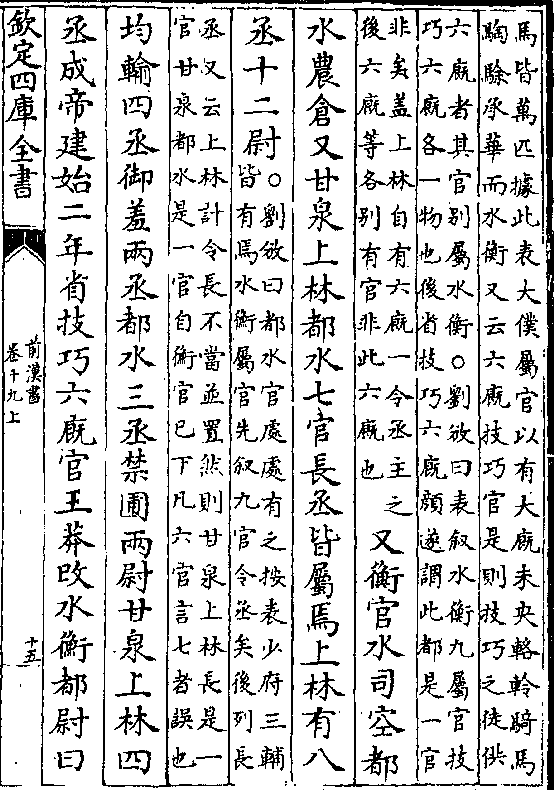 馬皆萬匹據此表大僕屬官以有大廐未央輅軨騎馬
騊駼承華而水衡又云六廐技巧官是則技巧之徒供
六廐者其官别屬水衡○劉攽曰表叙水衡九屬官技
巧六廐各一物也後省技巧六廐顔遂謂此都是一官
非矣盖上林自有六廐一令丞主之
後六廐等各别有官非此六廐也
又衡官水司空都
水農倉又甘泉上林都水七官長丞皆屬焉上林有八
丞十二尉
○劉攽曰都水官處處有之按表少府三輔
皆有焉水衡屬官先叙九官令丞矣後列長
丞又云上林計令長不當並置然則甘泉上林長是一
官甘泉都水是一官自衡官已下凡六官言七者誤也
均輸四丞御羞兩丞都水三丞禁圃兩尉甘泉上林四
丞成帝建始二年省技巧六廐官王莽改水衡都尉曰
欽定四庫全書
前漢書
卷十九上
十五